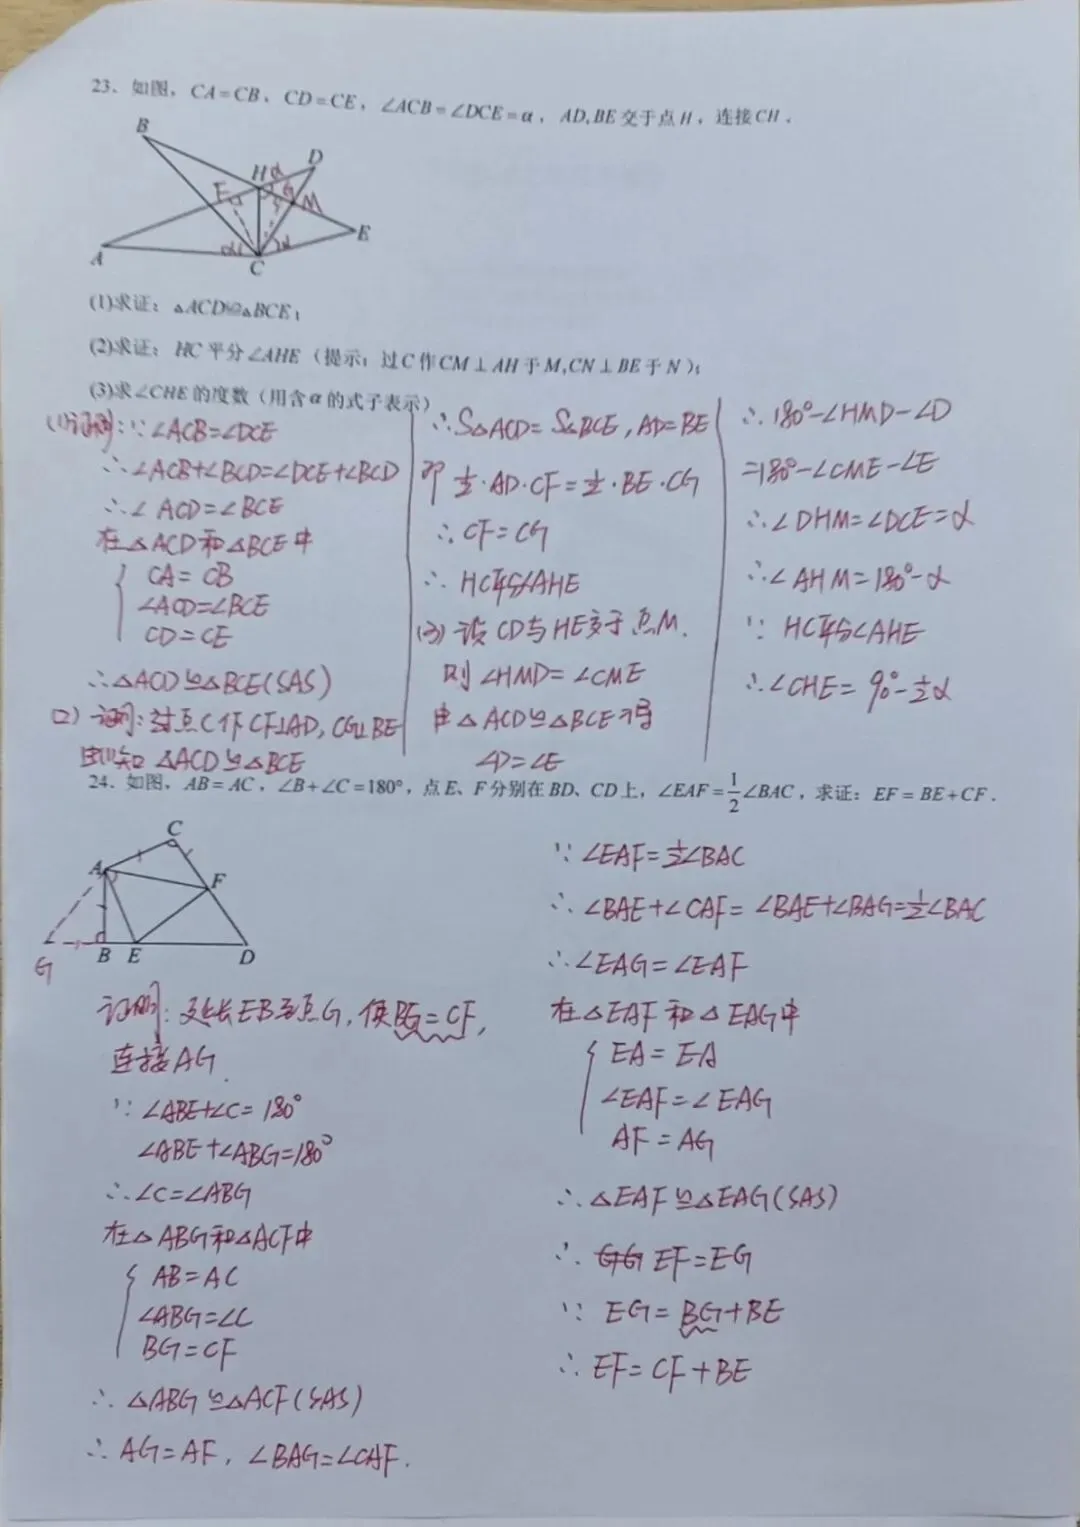 23. 如图，CA=CB、CD=CE，∠ACB=∠DCE=α，AD,BE交于点H，连接CH．
B
H α D
F G M
E
A α α
C
(1)求证：△ACD≌△BCE；
(2)求证：HC平分∠AHE（提示：过C作CM⊥AH于M,CN⊥BE于N）；
(3)求∠CHE的度数（用含α的式子表示）
(1)证明：∵∠ACB=∠DCE
∴∠ACB+∠BCD=∠DCE+∠BCD
∴∠ACD=∠BCE
在△ACD和△BCE中
CA=CB
∠ACD=∠BCE
CD=CE
∴△ACD≌△BCE(SAS)
(2) 证明：过点C作CF⊥AD, CG⊥BE
由(1)知 △ACD≌△BCE
∴S△ACD=S△BCE, AD=BE
即 ½·AD·CF=½·BE·CG
∴CF=CG
∴HC平分∠AHE
(3) 设CD与HE交于点M.
则∠HMD=∠CME
由△ACD≌△BCE得
∠D=∠E
∴180°-∠HMD-∠D
=180°-∠CME-∠E
∴∠DHM=∠DCE=α
∴∠AHM=180°-α
∵HC平分∠AHE
∴∠CHE=90°-½α
24. 如图，AB=AC，∠B+∠C=180°，点E、F分别在BD、CD上，∠EAF=1/2∠BAC，求证：EF=BE+CF．
C
A
F
G B E D
证明：延长EB至点G, 使BG=CF,
连接AG.
∵∠ABE+∠C=180°
∠ABE+∠ABG=180°
∴∠C=∠ABG
在△ABG和△ACF中
AB=AC
∠ABG=∠C
BG=CF
∴△ABG≌△ACF(SAS)
∴AG=AF, ∠BAG=∠CAF.
∵∠EAF=½∠BAC
∴∠BAE+∠CAF=∠BAE+∠BAG=½∠BAC
∴∠EAG=∠EAF
在△EAF和△EAG中
EA=EA
∠EAF=∠EAG
AF=AG
∴△EAF≌△EAG(SAS)
∴EF=EG
∵EG=BG+BE
∴EF=CF+BE